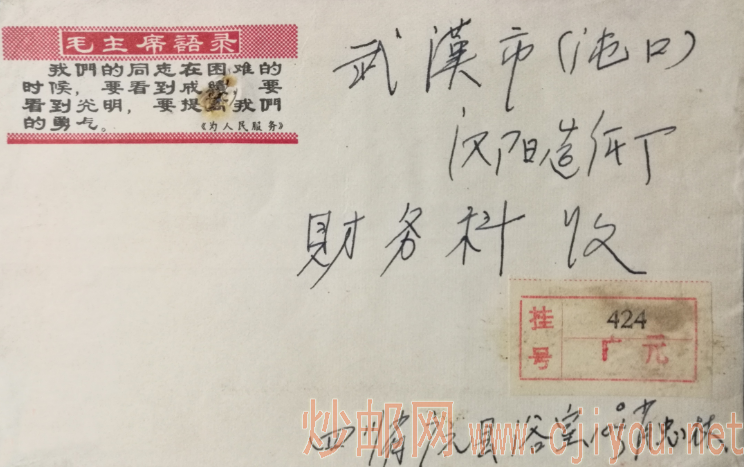 毛主席語录
我們的同志在困难的
时候，要看到成績，要
看到光明，要提高我們
的勇气。
《为人民服务》
武漢市(沌口)
汉阳造纸厂
財务科 收
挂号
424
广元
四川省广元县浴室
炒邮网 www.cjiyou.net